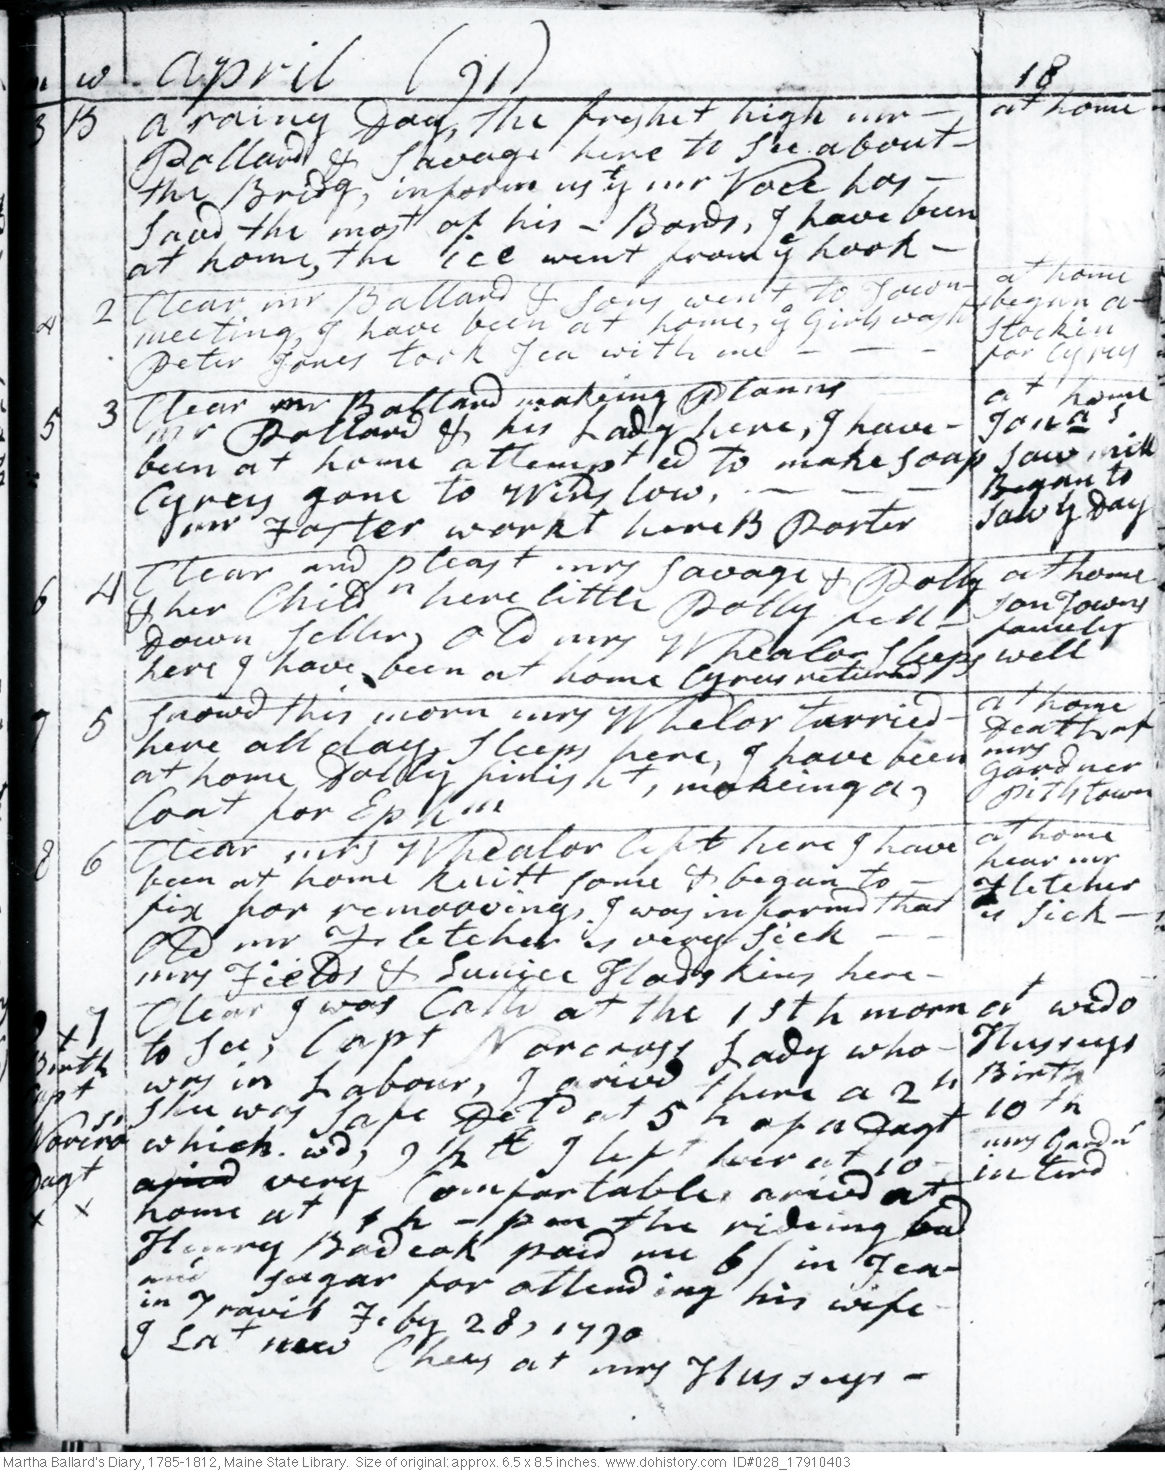 m w April (91) 18
3 B a rainy Day, the freshet high mr - at home
Ballard & Savage here to See about -
the Bridg, inform us ye mr Voce has -
Savd the most of his - Bords, I have been
at home, the ice went from ye hook -
4 2 Clear mr Ballard & Sons went to Town at home
meeting, I have been at home, ye Girls wash began a
Peter Jones took Tea with me - - - Stockin
for Cyrus
5 3 Clear mr Ballard makeing Planns at home
mr Pollard & his Lady here, I have - Jona s
been at home attempted to make soap saw mill
Cyrus gone to Winslow. - - - Began to
mr Foster workt here B Porter Saw ye Day
6 4 Clear and pleast mrs Savage & Dolly at home
& her Childn here little Dolly fell - son Towns
Down Seller, Old mrs Whealor Sleeps famely
here I have been at home Cyrus returnd well
7 5 Snowd this morn mrs Whelor tarried - at home
here all day, Sleeps here, I have been Death of
at home Dolly finisht, makeing a, mrs
Coat for Ephm Gardner
Pitstown
8 6 Clear mrs Whealor left here I have at home
been at home knitt some & began to - hear mr
fix for remooving, I was informd that Fletcher
Old mr Fletcher is very Sick - - is Sick -
mrs Fields & Eunice Hodskins here -
9 x 7 Clear I was Calld at the 1st h morn at wido
Birth to See, Capt Norcross Lady who - Husseys
Capt was in Labour, I arivd there a 2 h Birth
She was safe Deld at 5 h of a Dagt 10th
Norcros which. wd, 9 lb I left her at 10 - mrs Gardnr
Dagt arivd very Comfortable, arivd at interd
x x home at 1 h - pm the rideing bad
Henry Bodcok paid me 6/ in Tea
and sugar for attending his wife
in Travil Feby 28, 1790
I Eat new Chees at mrs Husseys -
Martha Ballard's Diary, 1785-1812, Maine State Library. Size of original: approx. 6.5 x 8.5 inches. www.dohistory.com ID#028_17910403